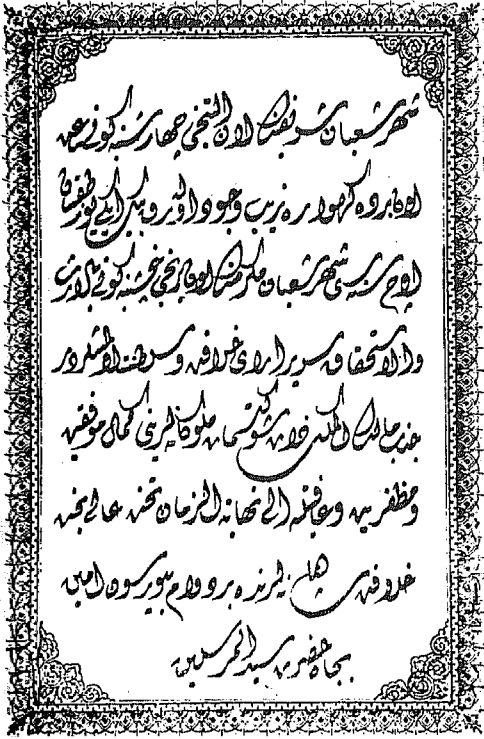 شهر شعبان شريفنك اون التنجى چهارشنبه كونى عن
اون برده كهواره زيب وجود اولوب و بيك ايكيوز طقسان
اوچ سنه سى شهر شعبان مكرمنك اون برنجى پنجشنبه كونى بالارث
والاستحقاق سرير اراى خلافت و سلطنت اولمشلردر
جناب مالك الملك ذات شوكتسمات ملوكانه لرينى كمال موفقيت
و مظفريت و عافيتله الى نهاية الزمان تخت عالى بخت
خلافت شاهانه لرنده بردوام بيورسون امين
بجاه حضرت سيد المرسلين